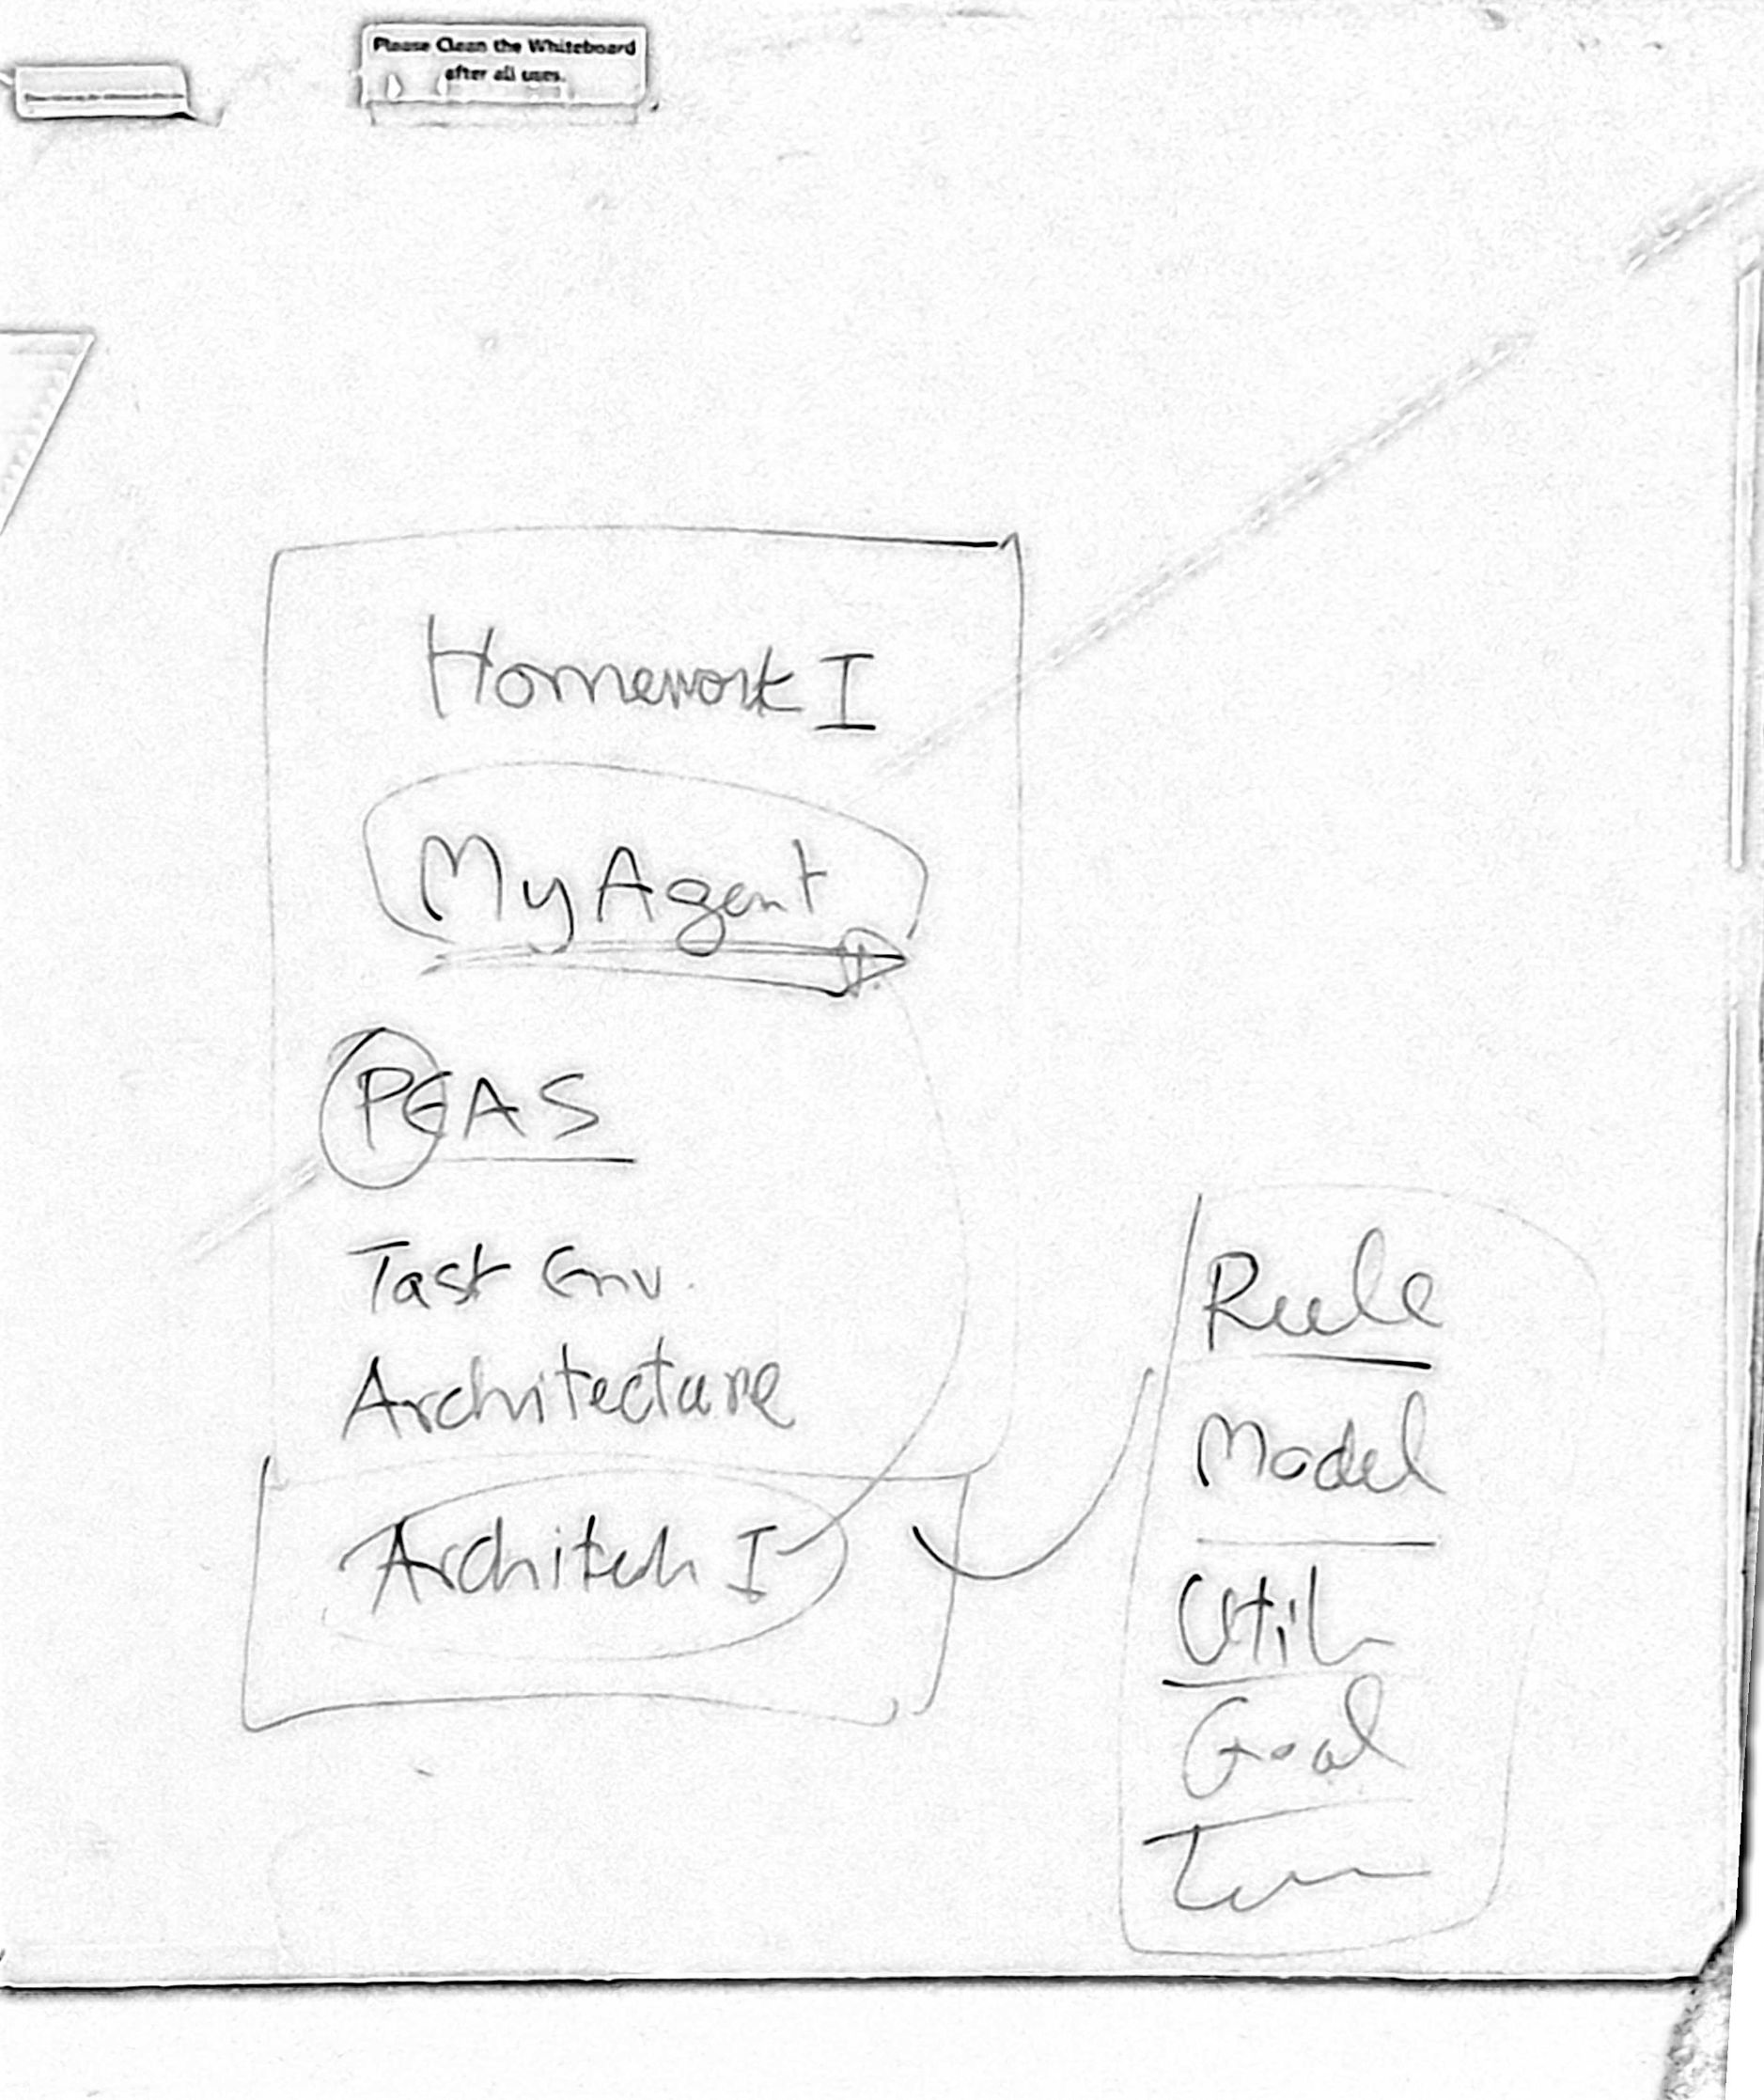 Please Clean the Whiteboard
after all uses.
Homework I
My Agent
PEAS
Tast Env.
Architecture
Architech I
Rule
Model
Util
Goal